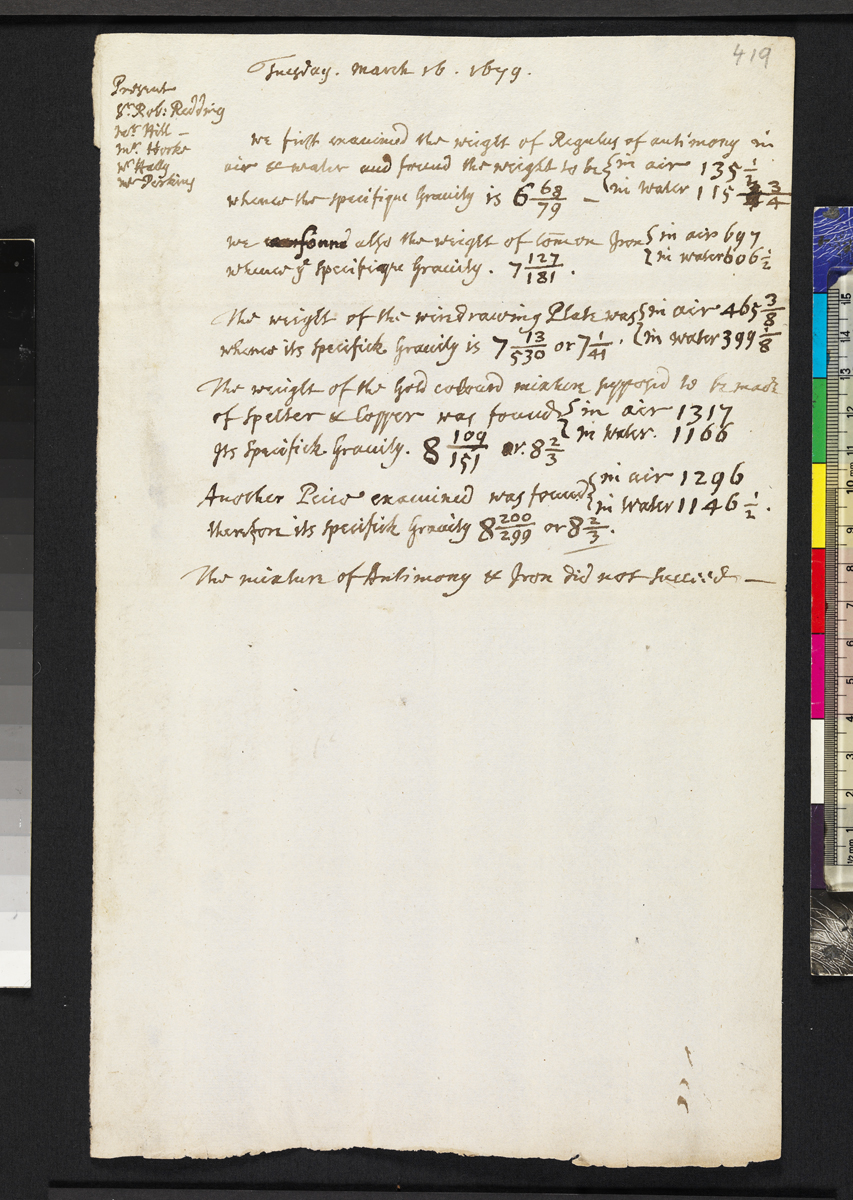 419
Tuesday. March 16. 1679.
Present
Sr. Rob: Redding
Mr. Hill –
Mr. Hooke
Mr Hally
Mr Perkins
we first examined the weight of Regulus of antimony in
air & water and found the weight to be { in air 135 1/2
whence the specifique Gravity is 6 68/79 – { in water 115 3/4
we found also the weight of comon Iron { in air 697
whence ye specifique Gravity. 7 127/181. { in water 606 1/2
The weight of the wiredrawing Plate was { in air 465 3/8
whence its specifick Gravity is 7 13/530 or 7 1/41. { in water 399 1/8
The weight of the Gold coloured mixture supposed to be made
of Spelter & Copper was found { in air 1317
Its Specifick Gravity. 8 109/151 or. 8 2/3 { in water. 1166
Another Peice examined was found { in air 1296
{ in water 1146 1/2.
therefore its specifick Gravity 8 200/299 or 8 2/3.
The mixture of Antimony & Iron did not succeed –